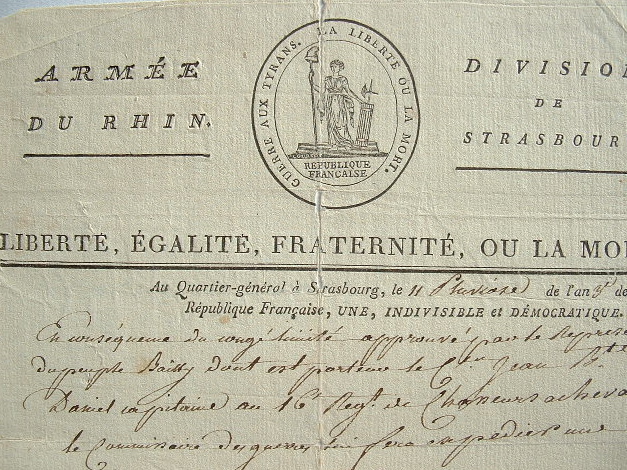 ARMÉE
DU RHIN.
GUERRE AUX TYRANS. LA LIBERTE OU LA MORT.
REPUBLIQUE
FRANÇAISE
DIVISION
DE
STRASBOUR
LIBERTÉ, ÉGALITÉ, FRATERNITÉ, OU LA MO
Au Quartier-général à Strasbourg, le 11 Pluviose de l'an 3e de
République Française, UNE, INDIVISIBLE et DÉMOCRATIQUE.
En conséquence du congé limité approuvé par le Représe
du peuple Bailly dont est porteur le Cen Jean Bte
Daniel capitaine au 16e Regt. de Chasseurs acheva
le Commissaire des guerres lui fera expédier une